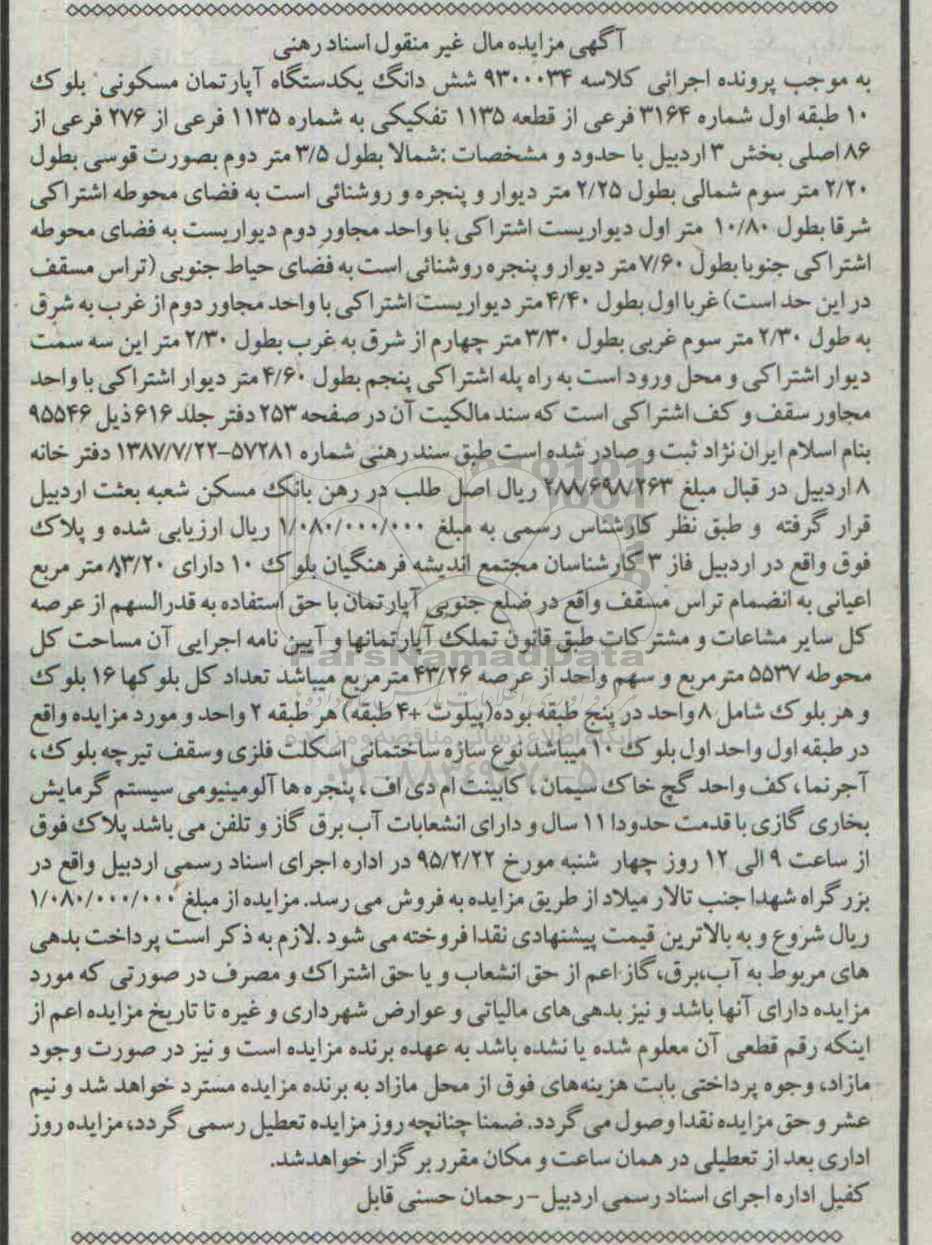 آگهی مزایده مال غیر منقول اسناد رهنی
به موجب پرونده اجرائی کلاسه ۹۳۰۰۰۳۴ شش دانگ یکدستگاه آپارتمان مسکونی بلوک
۱۰ طبقه اول شماره ۳۱۶۴ فرعی از قطعه ۱۱۳۵ تفکیکی به شماره ۱۱۳۵ فرعی از ۲۷۶ فرعی از
۸۶ اصلی بخش ۳ اردبیل با حدود و مشخصات :شمالا بطول ۳/۵ متر دوم بصورت قوسی بطول
۲/۲۰ متر سوم شمالی بطول ۲/۲۵ متر دیوار و پنجره و روشنائی است به فضای محوطه اشتراکی
شرقا بطول ۱۰/۸۰ متر اول دیواریست اشتراکی با واحد مجاور دوم دیواریست به فضای محوطه
اشتراکی جنوبا بطول ۷/۶۰ متر دیوار و پنجره روشنائی است به فضای حیاط جنوبی (تراس مسقف
در این حد است) غربا اول بطول ۴/۴۰ متر دیواریست اشتراکی با واحد مجاور دوم از غرب به شرق
به طول ۲/۳۰ متر سوم غربی بطول ۳/۳۰ متر چهارم از شرق به غرب بطول ۲/۳۰ متر این سه سمت
دیوار اشتراکی و محل ورود است به راه پله اشتراکی پنجم بطول ۴/۶۰ متر دیوار اشتراکی با واحد
مجاور سقف و کف اشتراکی است که سند مالکیت آن در صفحه ۲۵۳ دفتر جلد ۶۱۶ ذیل ۹۵۵۴۶
بنام اسلام ایران نژاد ثبت و صادر شده است طبق سند رهنی شماره ۵۷۲۸۱-۱۳۸۷/۷/۲۲ دفتر خانه
۸ اردبیل در قبال مبلغ ۲۸۸/۶۹۸/۲۶۳ ریال اصل طلب در رهن بانک مسکن شعبه بعثت اردبیل
قرار گرفته و طبق نظر کارشناس رسمی به مبلغ ۱/۰۸۰/۰۰۰/۰۰۰ ریال ارزیابی شده و پلاک
فوق واقع در اردبیل فاز ۳ کارشناسان مجتمع اندیشه فرهنگیان بلوک ۱۰ دارای ۸۳/۲۰ متر مربع
اعیانی به انضمام تراس مسقف واقع در ضلع جنوبی آپارتمان با حق استفاده به قدرالسهم از عرصه
کل سایر مشاعات و مشترکات طبق قانون تملک آپارتمانها و آیین نامه اجرایی آن مساحت کل
محوطه ۵۵۳۷ مترمربع و سهم واحد از عرصه ۴۳/۲۶ مترمربع میباشد تعداد کل بلوکها ۱۶ بلوک
و هر بلوک شامل ۸ واحد در پنج طبقه بوده(پیلوت +۴ طبقه) هر طبقه ۲ واحد و مورد مزایده واقع
در طبقه اول واحد اول بلوک ۱۰ میباشد نوع سازه ساختمانی اسکلت فلزی وسقف تیرچه بلوک،
آجرنما، کف واحد گچ خاک سیمان، کابینت ام دی اف، پنجره ها آلومینیومی سیستم گرمایش
بخاری گازی با قدمت حدودا ۱۱ سال و دارای انشعابات آب برق گاز و تلفن می باشد پلاک فوق
از ساعت ۹ الی ۱۲ روز چهار شنبه مورخ ۹۵/۲/۲۲ در اداره اجرای اسناد رسمی اردبیل واقع در
بزرگراه شهدا جنب تالار میلاد از طریق مزایده به فروش می رسد. مزایده از مبلغ ۱/۰۸۰/۰۰۰/۰۰۰
ریال شروع و به بالاترین قیمت پیشنهادی نقدا فروخته می شود .لازم به ذکر است پرداخت بدهی
های مربوط به آب،برق،گاز اعم از حق انشعاب و یا حق اشتراک و مصرف در صورتی که مورد
مزایده دارای آنها باشد و نیز بدهی‌های مالیاتی و عوارض شهرداری و غیره تا تاریخ مزایده اعم از
اینکه رقم قطعی آن معلوم شده یا نشده باشد به عهده برنده مزایده است و نیز در صورت وجود
مازاد، وجوه پرداختی بابت هزینه‌های فوق از محل مازاد به برنده مزایده مسترد خواهد شد و نیم
عشر و حق مزایده نقدا وصول می گردد. ضمنا چنانچه روز مزایده تعطیل رسمی گردد، مزایده روز
اداری بعد از تعطیلی در همان ساعت و مکان مقرر برگزار خواهدشد.
کفیل اداره اجرای اسناد رسمی اردبیل-رحمان حسنی قابل
ParsNamadData